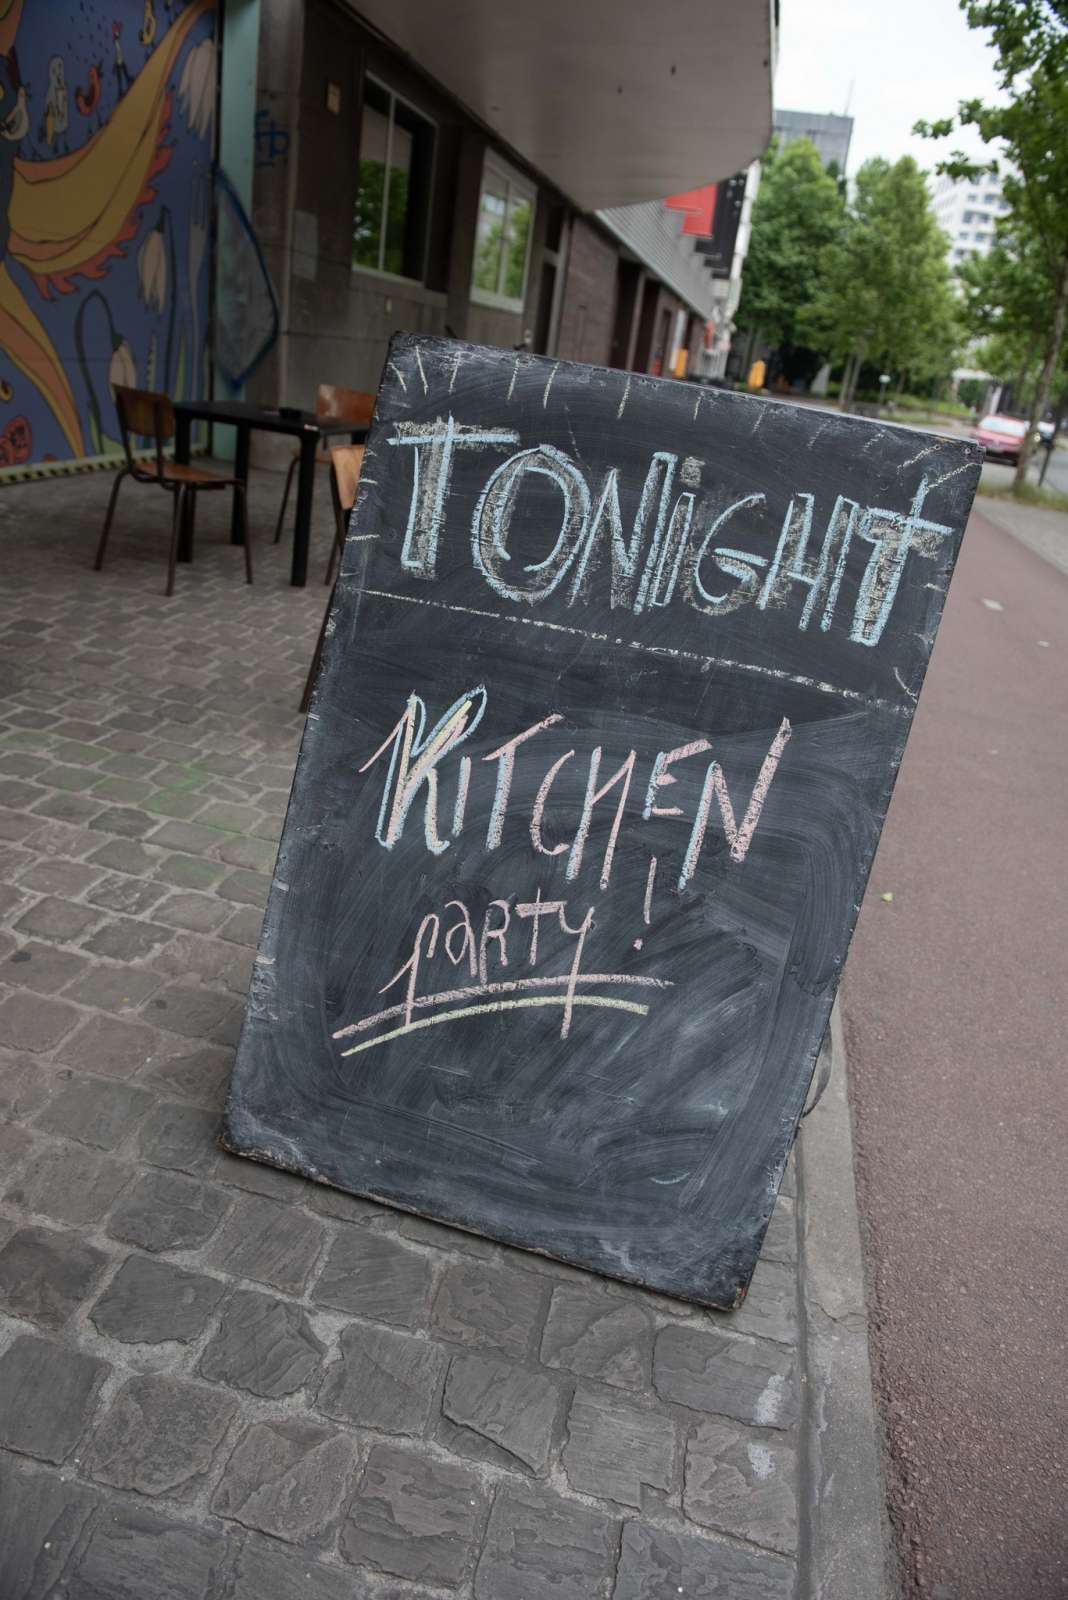 TONIGHT
KITCHEN
PARTY!